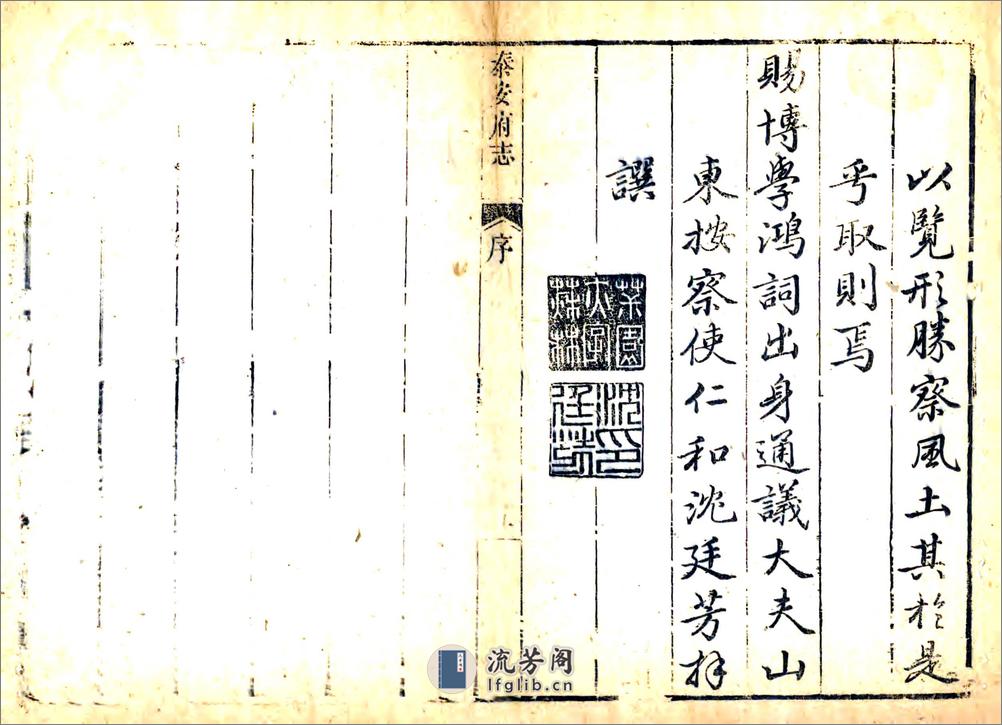 以覽形勝察風土其於是
乎取則焉
賜博學鴻詞出身通議大夫山
東按察使仁和沈廷芳拜
譔
沈印廷芳
泰安府志
序
流芳阁
lfglib.cn